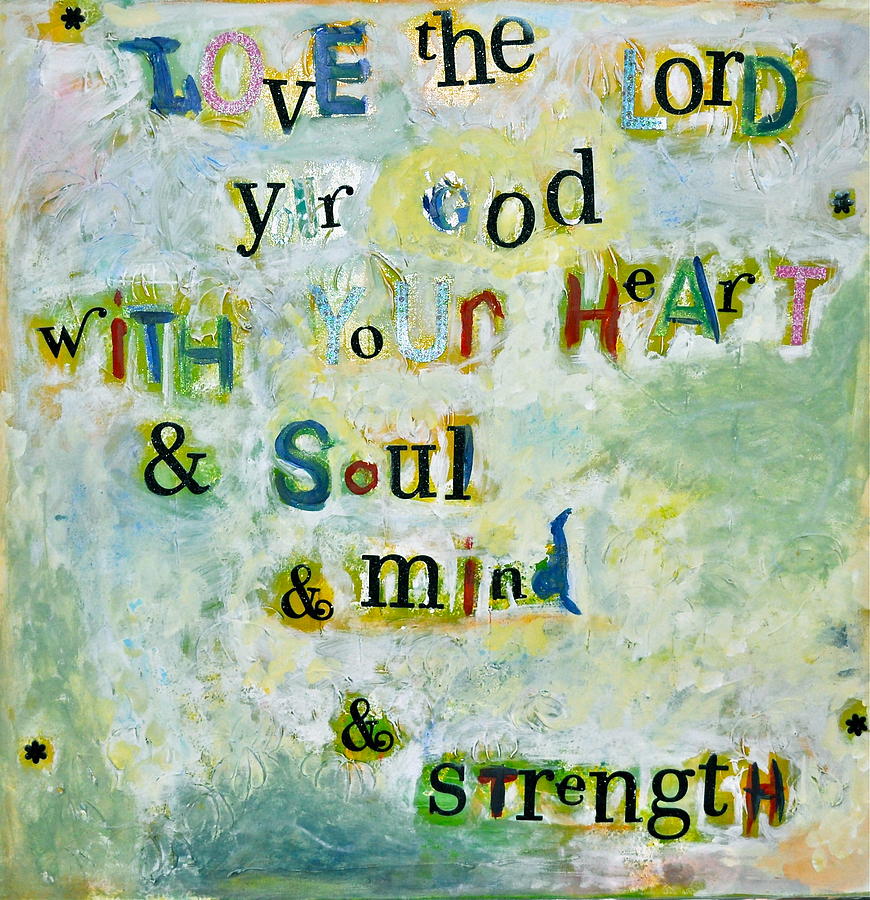 LOvE the LorD
your God
wiTH YoUr HeArT
& Soul
& mind
&
sTrengtH